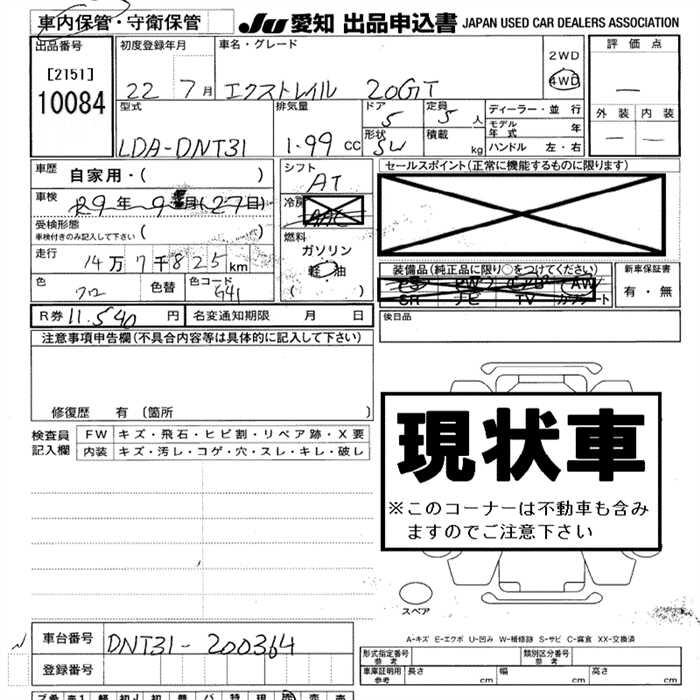 車内保管・守衛保管
JU 愛知 出品申込書 JAPAN USED CAR DEALERS ASSOCIATION
出品番号 初度登録年月 車名・グレード 2WD 評価点
[2151] 22 7月 エクストレイル 20GT 4WD —
10084
型式 排気量 ドア 5 定員 5人 ディーラー・並行 外装 内装
LDA-DNT31 1.99 cc 形状 SW 積載 kg モデル年式 年 — —
ハンドル 左・右
車歴 自家用・( ) シフト AT セールスポイント(正常に機能するものに限ります)
車検 29年 9月(27日) 冷房 AAC
受検形態 ( )
車検付きのみ記入して下さい
燃料 ガソリン
走行 14万7千825km 軽油
( )
装備品(純正品に限り○をつけてください) 新車保証書
PW AW
SR ナビ TV カワシート 有・無
色 クロ 色替 色コード G41
R券 11,540円 名変通知期限 月 日 後日品
注意事項申告欄(不具合内容等は具体的に記入して下さい)
修復歴 有 〔箇所 〕
検査員記入欄 FW キズ・飛石・ヒビ割・リペア跡・X要
内装 キズ・汚レ・コゲ・穴・スレ・キレ・破し
現状車
※このコーナーは不動車も含み
ますのでご注意下さい
スペア
A-キズ E-エクボ U-凹み W-補修跡 S-サビ C-腐食 XX-交換済
車台番号 DNT31-200364
登録番号
形式指定番号 参考 類別区分番号 参考
車庫証明用 参考 長さ cm 幅 cm 高さ cm